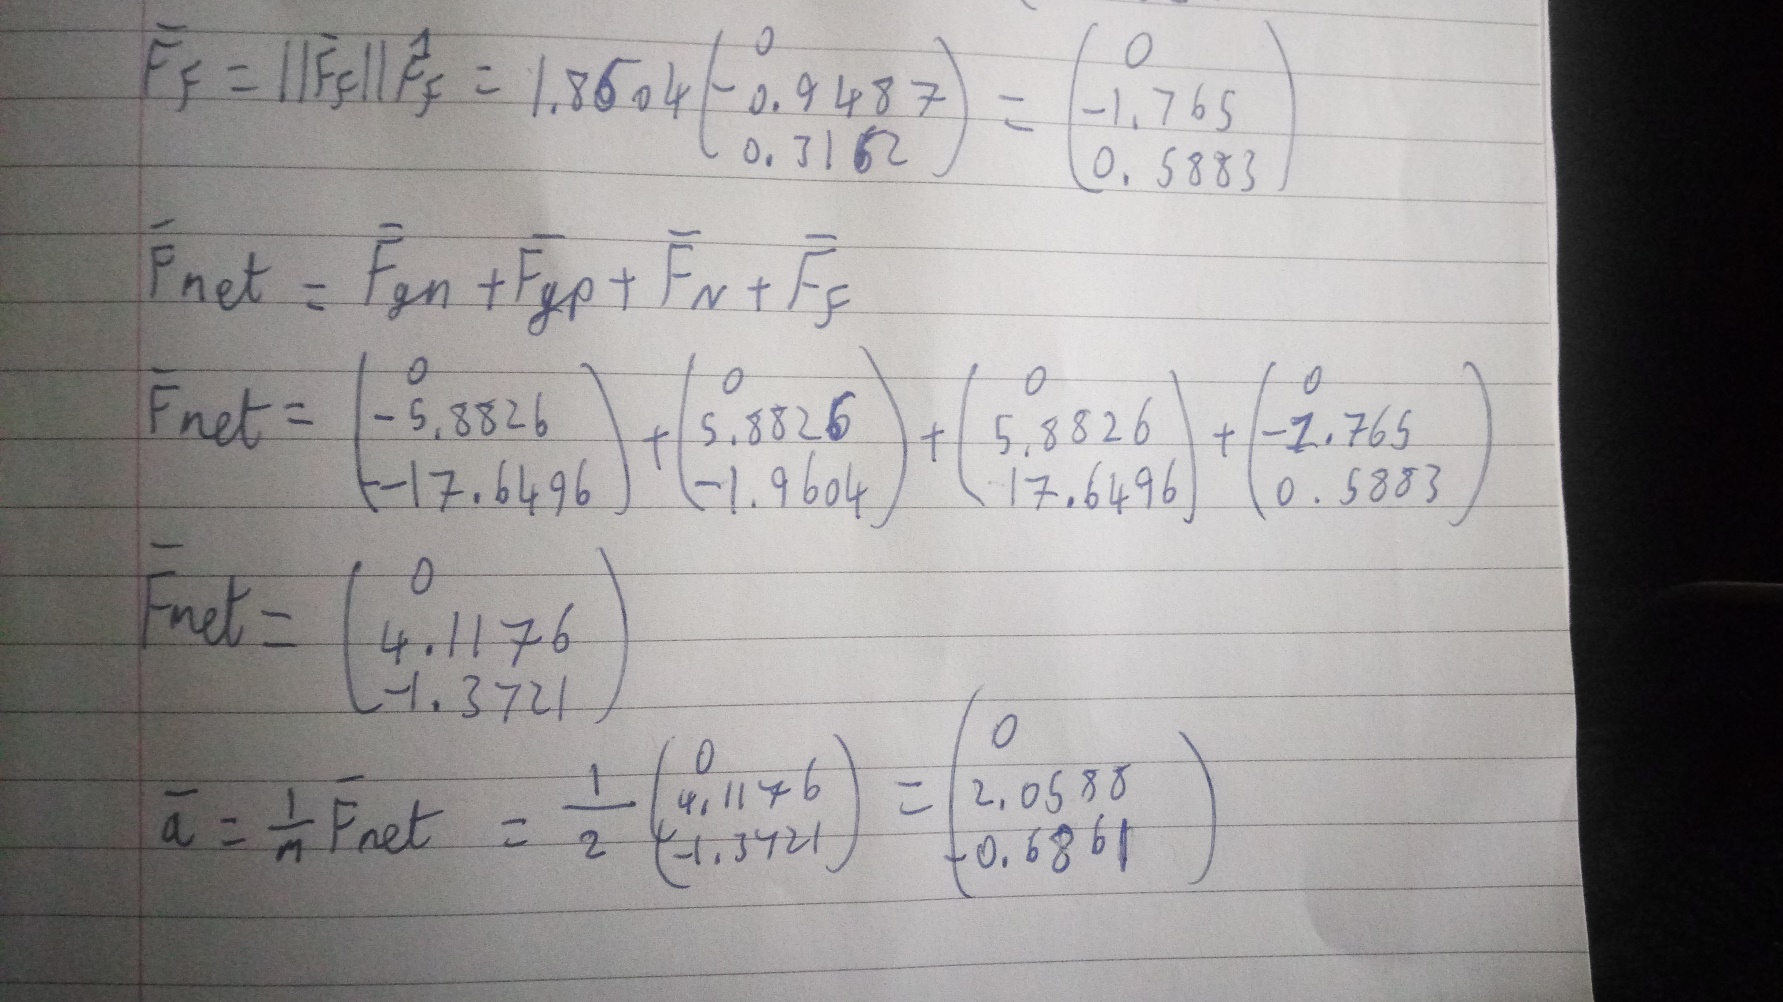 F̄f = ||F̄f|| F̂f = 1.8604 (0 -0.9487 0.3162) = (0 -1.765 0.5883)
F̄net = F̄gn + F̄gp + F̄N + F̄f
F̄net = (0 -5.8826 -17.6496) + (0 5.8826 -1.9604) + (0 5.8826 17.6496) + (0 -1.765 0.5883)
F̄net = (0 4.1176 -1.3721)
ā = 1/m F̄net = 1/2 (0 4.1176 -1.3721) = (0 2.0588 -0.6861)